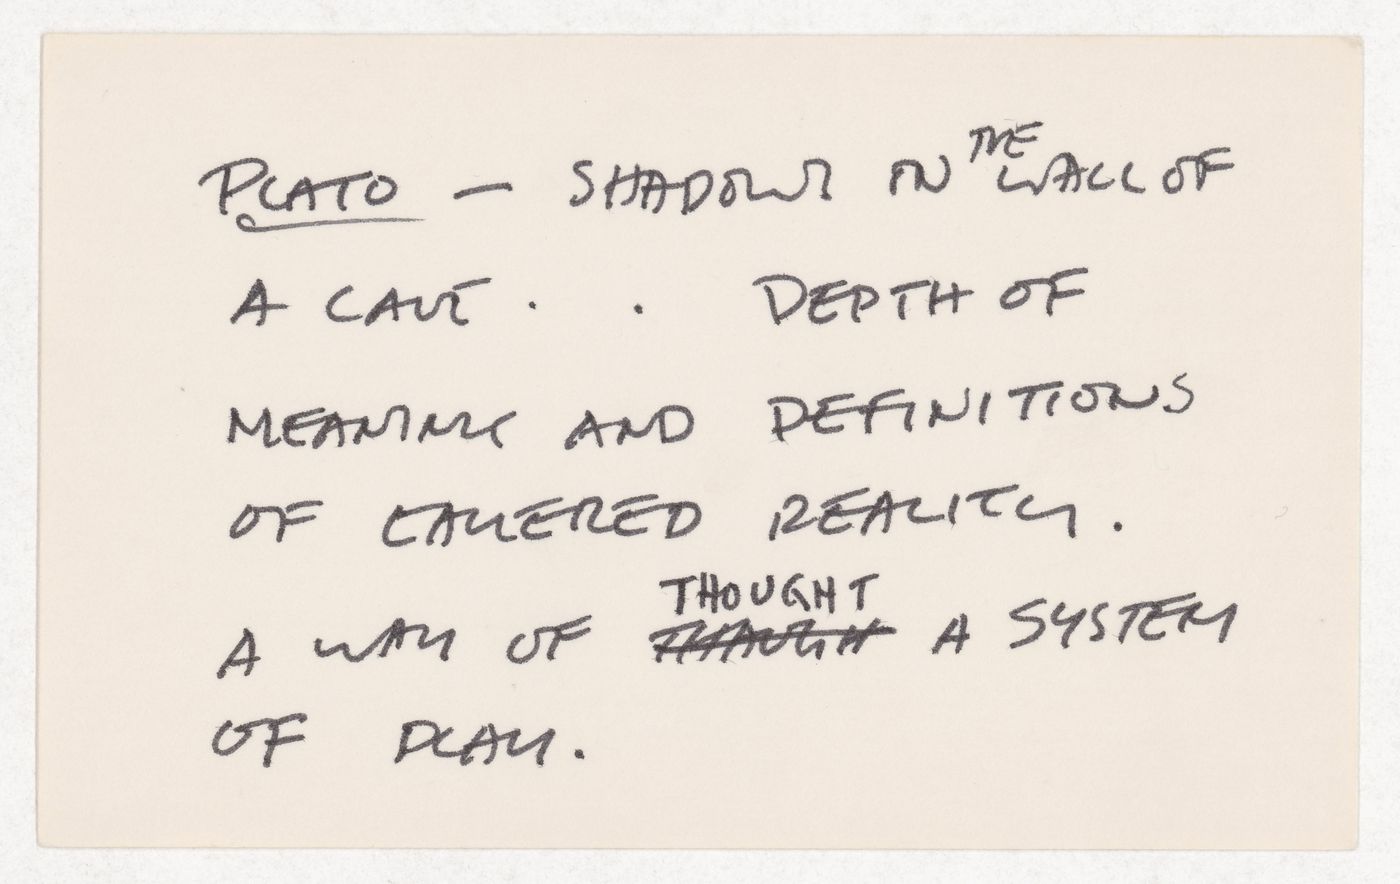 PLATO — SHADOWS ON THE WALL OF
A CAVE . . DEPTH OF
MEANING AND DEFINITIONS
OF LAYERED REALITY.
A WAY OF THOUGHT A SYSTEM
OF PLAY.